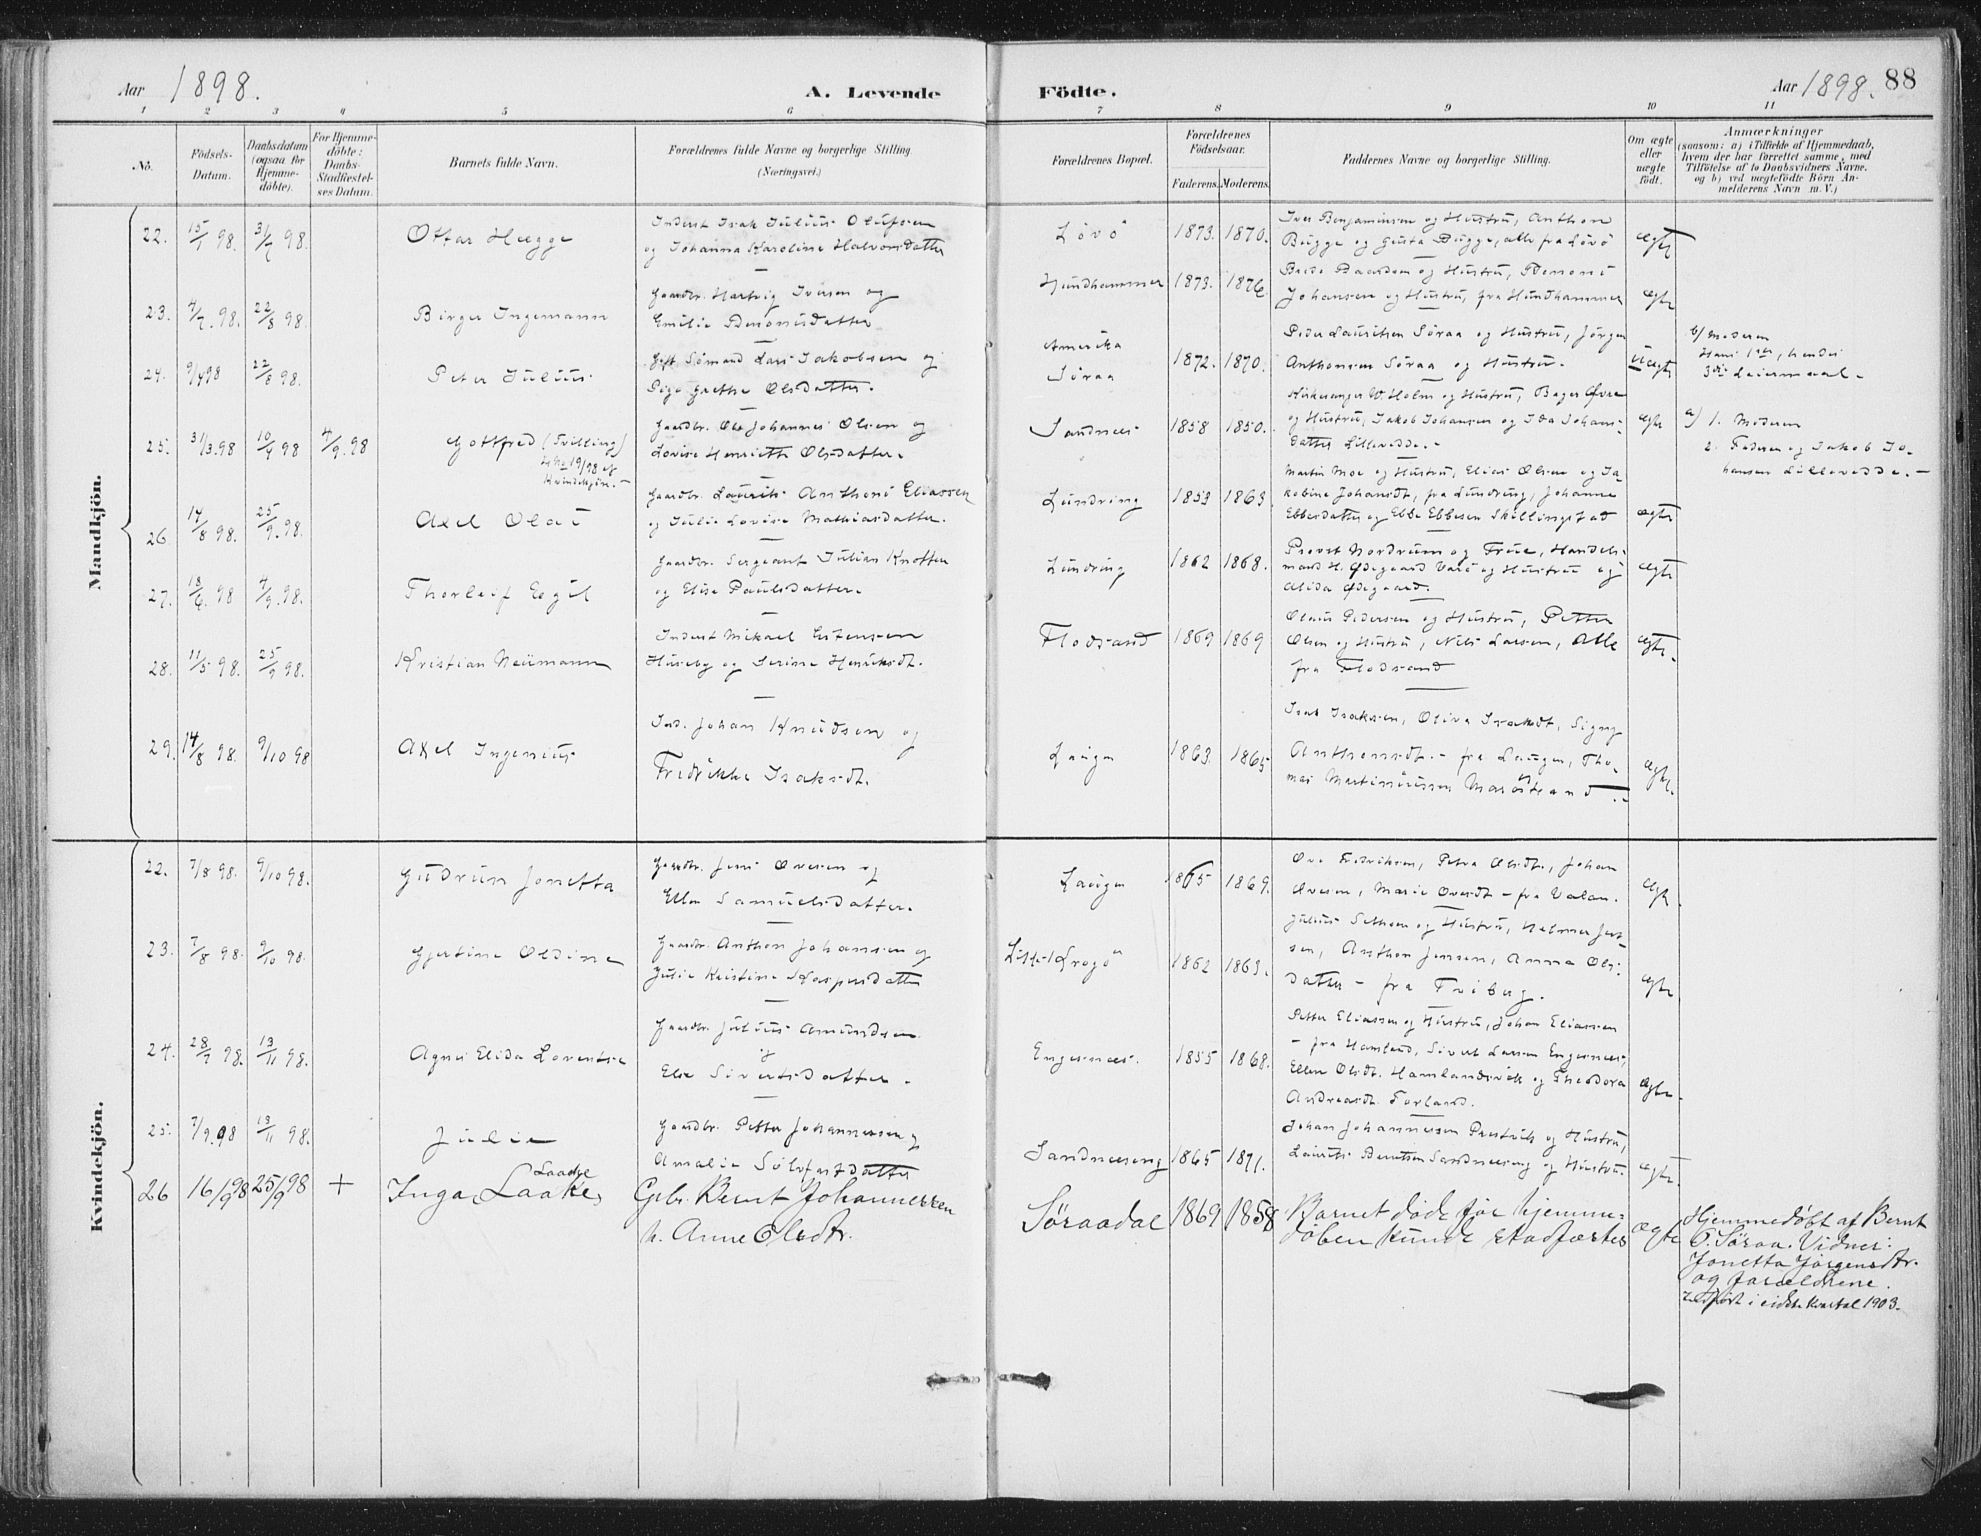 Aar 1898.
A. Levende
Födte.
Aar 1898. 88
1 2 3 4 5 6 7 8 9 10 11
No.
Födsels-Datum.
Daabsdatum (ogsaa for Hjemme-döbte).
For Hjemme-döbte: Daabs-Stadfæstel-ses Datum.
Barnets fulde Navn.
Forældrenes fulde Navne og borgerlige Stilling.
(Næringsvei.)
Forældrenes Bopæl.
Forældrenes Födselsaar.
Faderens. Moderens.
Faddernes Navne og borgerlige Stilling.
Om ægte eller uægte födt.
Anmærkninger
(saasom: a) i Tilfælde af Hjemmedaab,
hvem der har forrettet samme, med
Tilföielse af to Daabsvidners Navne,
og b) ved uægtefödte Börn An-
melderens Navn m. V.)
Mandkjön.
22. 15/1 98. 31/7 98. Ottar Hegge
Inderst Isak Julius Olufsen
og Johanna Karoline Halvorsdatter
Lövö 1873. 1870.
Iver Benjaminsen og Hustru, Anthon
Bugge og Gusta Bugge, alle fra Lövö
ægte
23. 4/7. 98. 22/8 98. Birger Ingemann
Gaardbr. Hartvig Iversen og
Emilie Benonisdatter
Hundhammer 1873. 1876.
Baardsen og Hustru, Benoni
Johansen og Hustru, fra Hundhammer
ægte
24. 9/4 98 22/8 98. Peter Julius
Gift Sömand Lars Jakobsen og
Pige Grethe Olsdatter.
Amerika
Söraa
1872. 1870.
Peder Lauritsen Söraa og Hustru, Jörgen
Anthonsen Söraa og Hustru.
Uægte
b) Moderen
Hans 1ste, hendes
3die Leiermaal.
25. 31/3.98 10/4 98 4/9. 98 Gottfred (Tvilling)
Kvindekjön.
Gaardbr. Ole Johannes Olsen og
Lovise Henriette Olsdatter.
Sandnees 1858 1850.
Kirkesanger W. Holm og Hustru, Bager Övre
og Hustru, Jakob Johansen og Ida Johans-
datter Lillevedde.
ægte
a) 1. Moderen
2. Faderen og Jakob Jo-
hansen Lillevedde.
26 14/8 98. 25/9. 98. Axel Olai
Gaardbr. Laurits Anthoni Eliassen
og Julie Lovise Mathiasdatter.
Lundring 1853 1863
Martin Moe og Hustru, Elias Olsen og Ja-
kobine Johansdt., fra Lundring, Johanne
Ebbesdatter og Ebbe Ebbesen Skillingstad
ægte
27. 18/6. 98 4/9. 98. Thorleif Egil
Gaardbr. Sergeant Julian Knotten
og Elise Paulsdatter.
Lundring 1862 1868.
Provst Nordrum og Frue, Handels-
mand H. Ødegaard Varö og Hustru og
Alida Ødegaard.
ægte
28. 11/5 98. 25/9 98. Kristian Neümann
Inderst Mikael Estensen
Huseby og Serine Henriksdt.
Flodsand 1869 1869
Olaus Pedersen og Hustru, Petter
Olsen og Hustru, Nils Larsen, Alle
fra Flodsand
ægte.
29. 14/8 98. 9/10 98 Axel Ingenius
Ind. Johan Knudsen og
Fredrikke Isaksdt.
Laugen 1863. 1865
Isak Isaksen, Oliva Isaksdt, Signy
Anthonsdt. - fra Laugen, Tho-
mas Martinüssen Marostrand.
ægte.
Kvindekjön.
22. 7/8 98. 9/10 98. Gudrun Jonetta
Gaardbr. Jens Ovesen og
Ellen Samuelsdatter.
Laugen 1865 1869.
Ove Fredriksen, Petra Olsdt., Johan
Ovesen, Marie Ovesdt - fra Valan.
ægte.
23. 7/8 98. 9/10 98. Gjertine Oldine
Gaardbr. Anthon Johansen og
Julie Kristine Kaspersdatter
Lille-Krogö 1862 1863.
Julius Sethsen og Hustru, Helmer Jert-
sen, Anthon Jensen, Anna Ols-
datter - fra Friberg.
ægte
24. 28/7 98. 13/11 98. Agnes Elida Lorentse
Gaardbr. Julius Amundsen
og
Else Sivertsdatter.
Engesnees. 1855 1868.
Petter Eliassen og Hustru, Johan Eliassen
- fra Hamland, Sivert Larsen Engesnees,
Ellen Olsdt. Hamlandsvik og Theodora
Andreasdt. Forland.
ægte.
25. 7/9. 98 13/11 98. Julie
Gaardbr. Petter Johannessen og
Amalie Sölvfestdatter
Sandneeseng 1865 1871.
Johan Johannessen Prestvik og Hustru,
Laurits Berntsen Sandneeseng og Hustru
ægte.
26 16/9 98 25/9 98 + Inga Laake
Laache
Gbr. Bernt Johannessen
h. Anne Olsdtr.
Söraadal 1869 1858
Barnet döde för hjemme-
döben kunde stadfæstes
ægte
Hjemmedöbt af Bernt
O. Söraa. Vidner:
Jonetta Jörgensdtr.
og Forældrene.
Indfört i sidste Kvartal 1903.